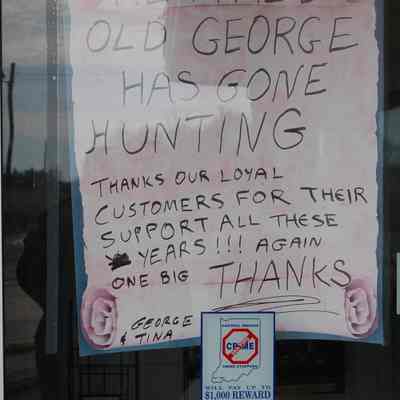 OLD GEORGE
HAS GONE
HUNTING
THANKS OUR LOYAL
CUSTOMERS FOR THEIR
SUPPORT ALL THESE
YEARS!!! AGAIN
ONE BIG THANKS
GEORGE
& TINA
WILL PAY UP TO
$1,000 REWARD